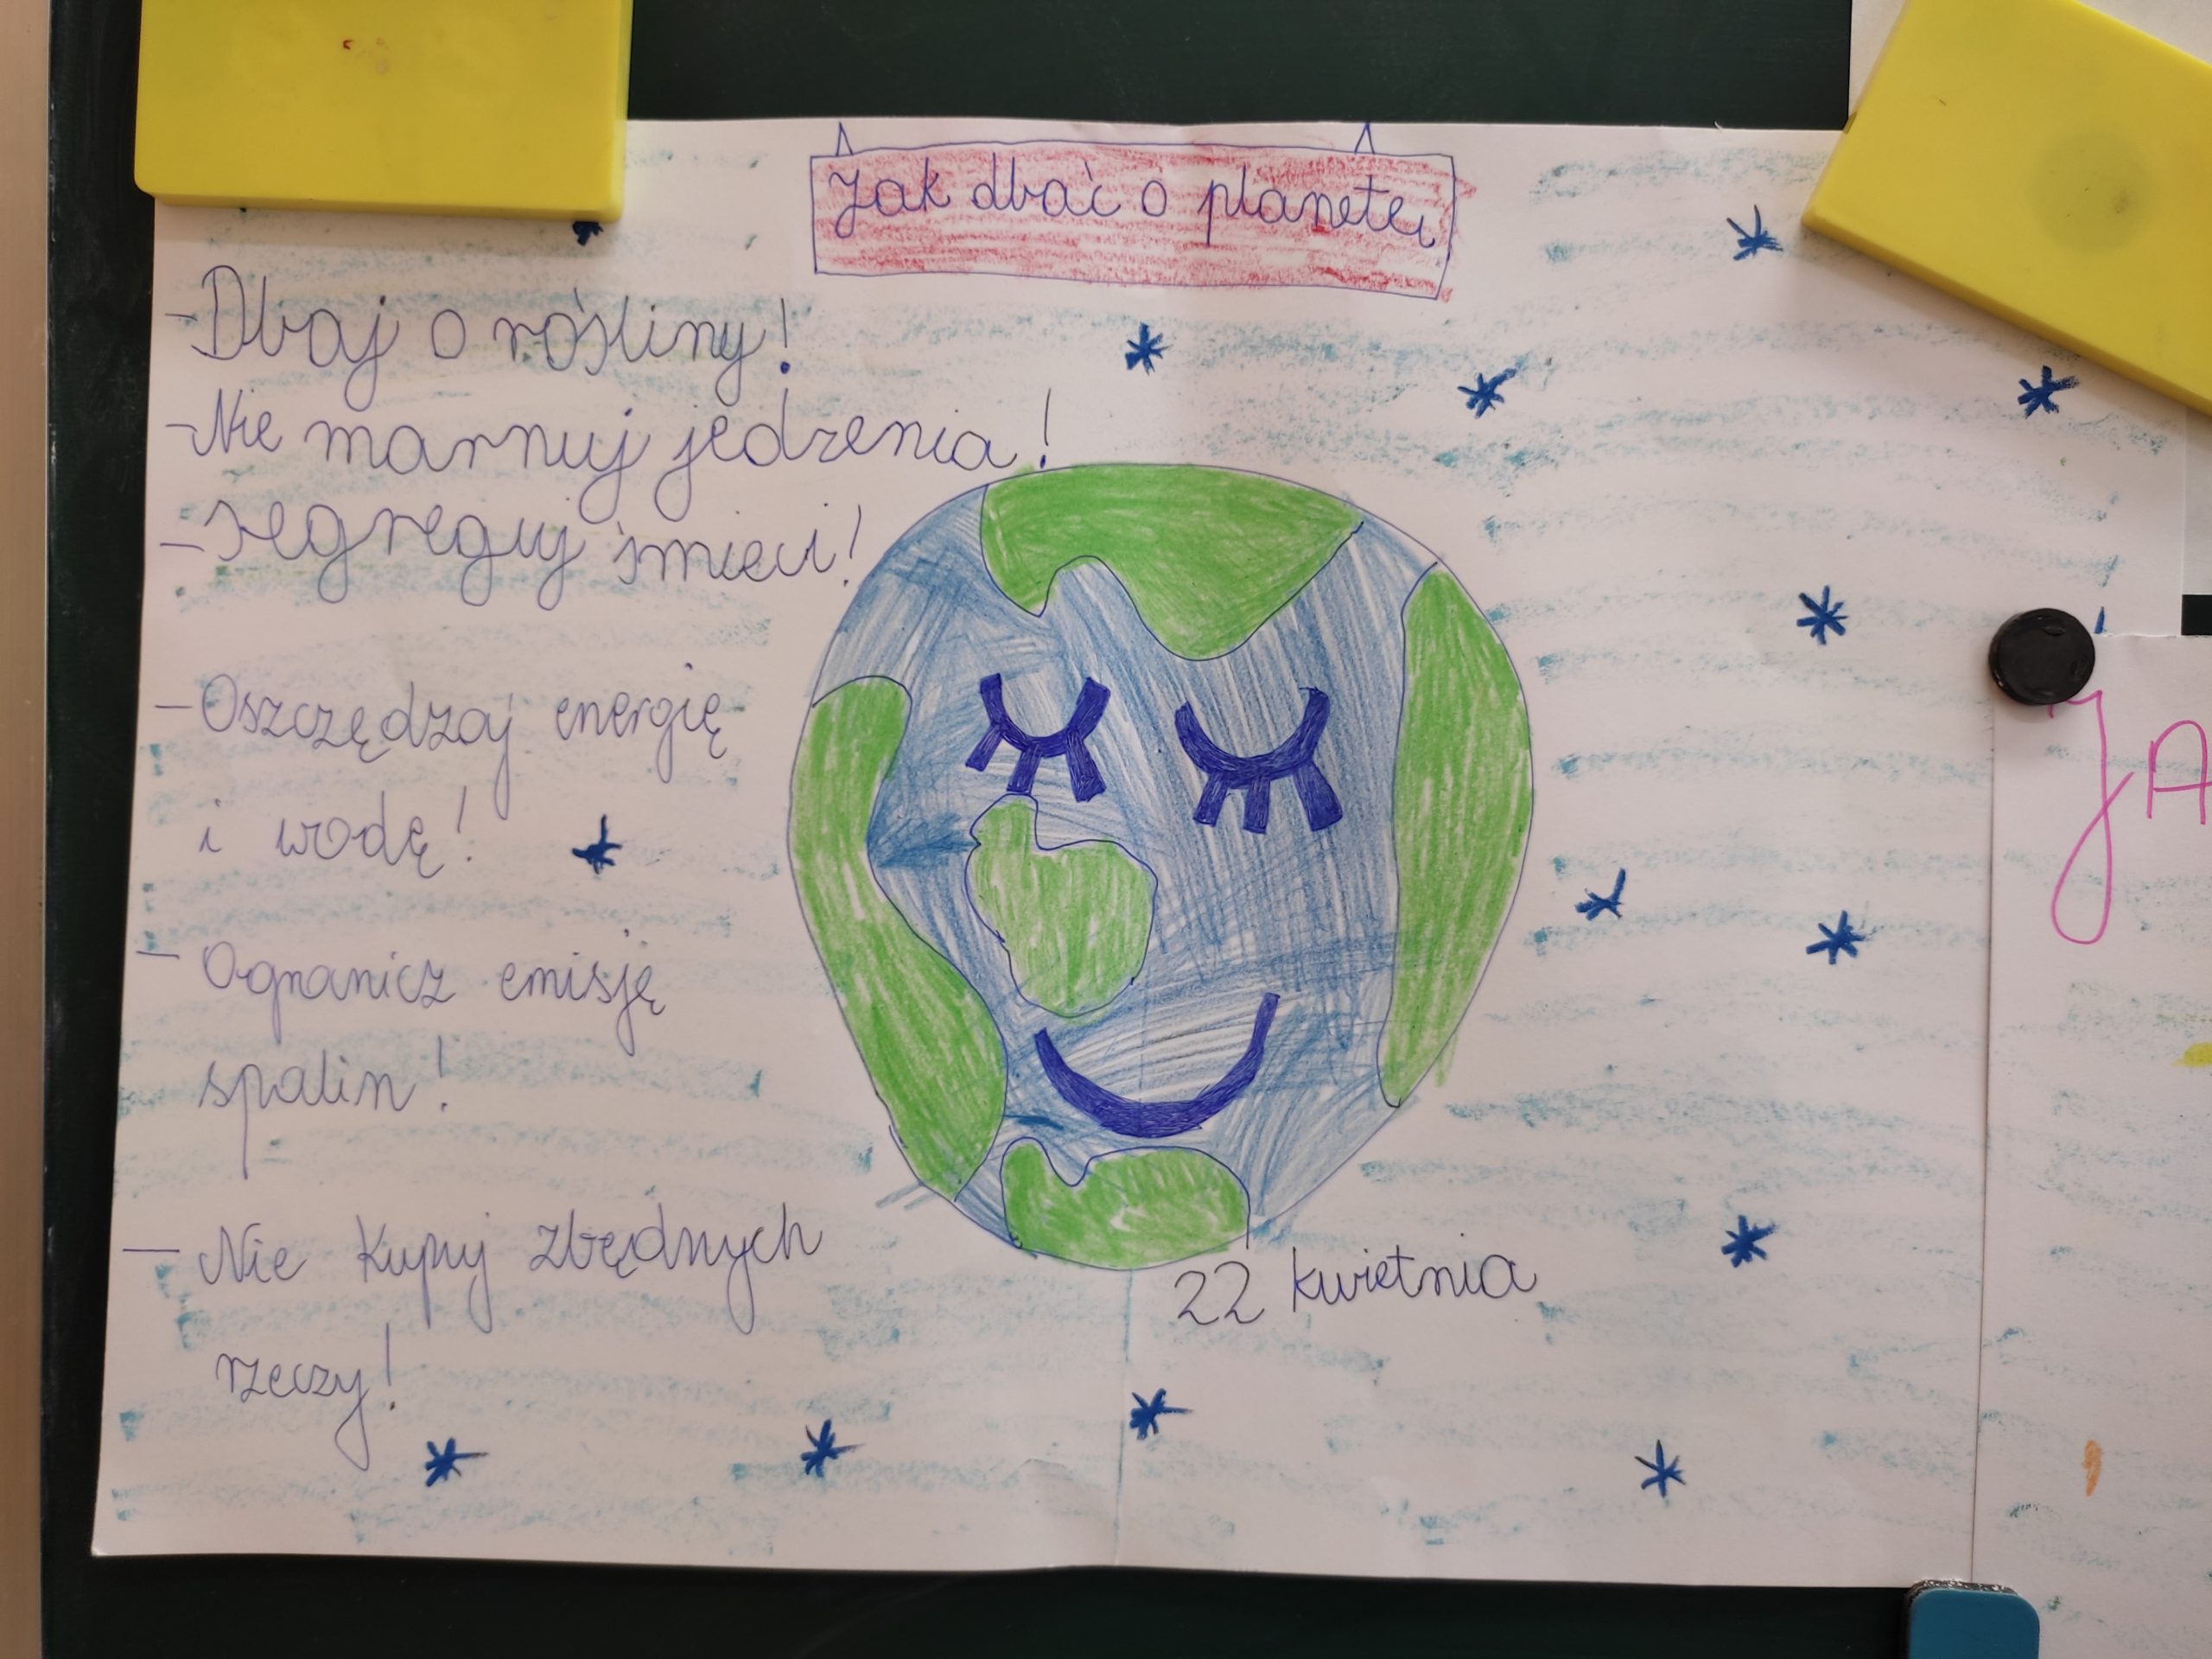 Jak dbać o planetę
- Dbaj o rośliny!
- Nie marnuj jedzenia!
- segreguj śmieci!
- Oszczędzaj energię
i wodę!
- Ogranicz emisję
spalin!
- Nie kupuj zbędnych
rzeczy!
22 kwietnia
JA